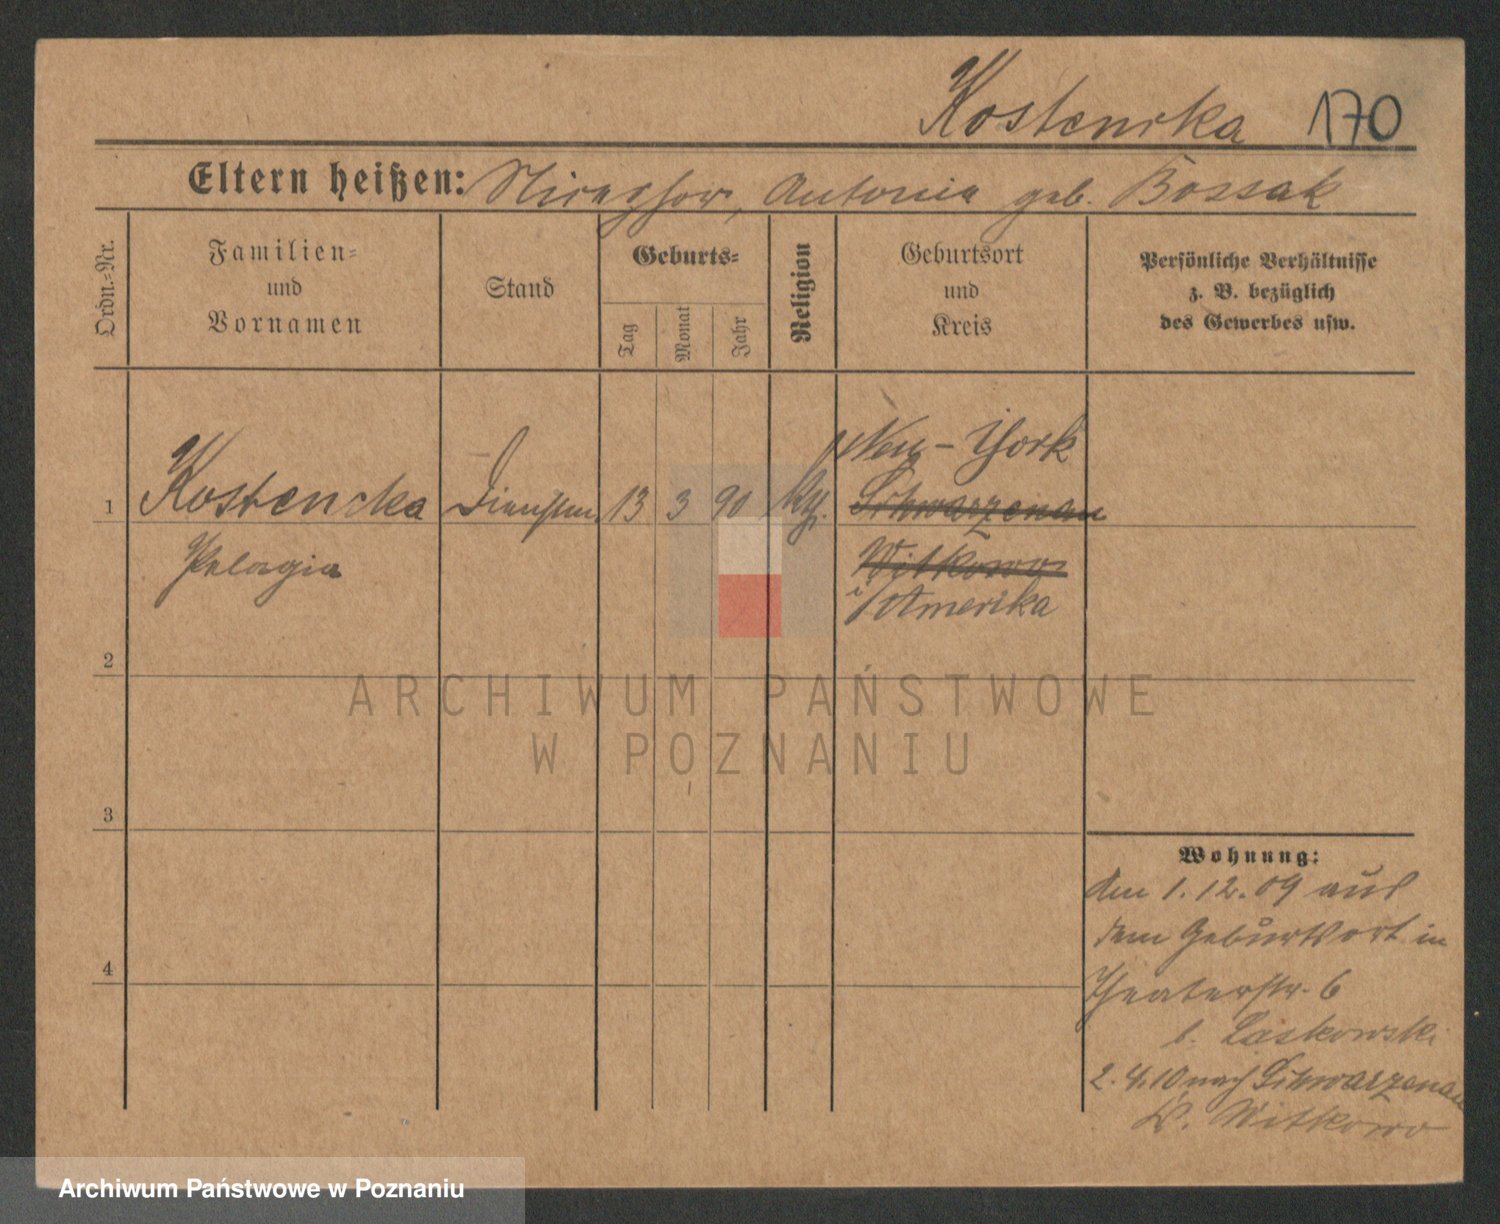 Kostencka 170
Eltern heißen: Antonie geb. Bossak
Ordn.-Nr.
Familien-
und
Vornamen
Stand
Geburts-
Tag
Monat
Jahr
Religion
Geburtsort
und
Kreis
Persönliche Verhältnisse
z. B. bezüglich
des Gewerbes usw.
Neu-York
1 Kostencka 13 3 90 Schwarzenau
Pelagia Witkowo
i/Amerika
2
3
4
Wohnung:
den 1.12.09 aus
dem Geburtsort in
Theaterstr. 6
b. Laskowski
2.4.10 nach Schwarzenau
K. Witkowo
ARCHIWUM PAŃSTWOWE
W POZNANIU
Archiwum Państwowe w Poznaniu